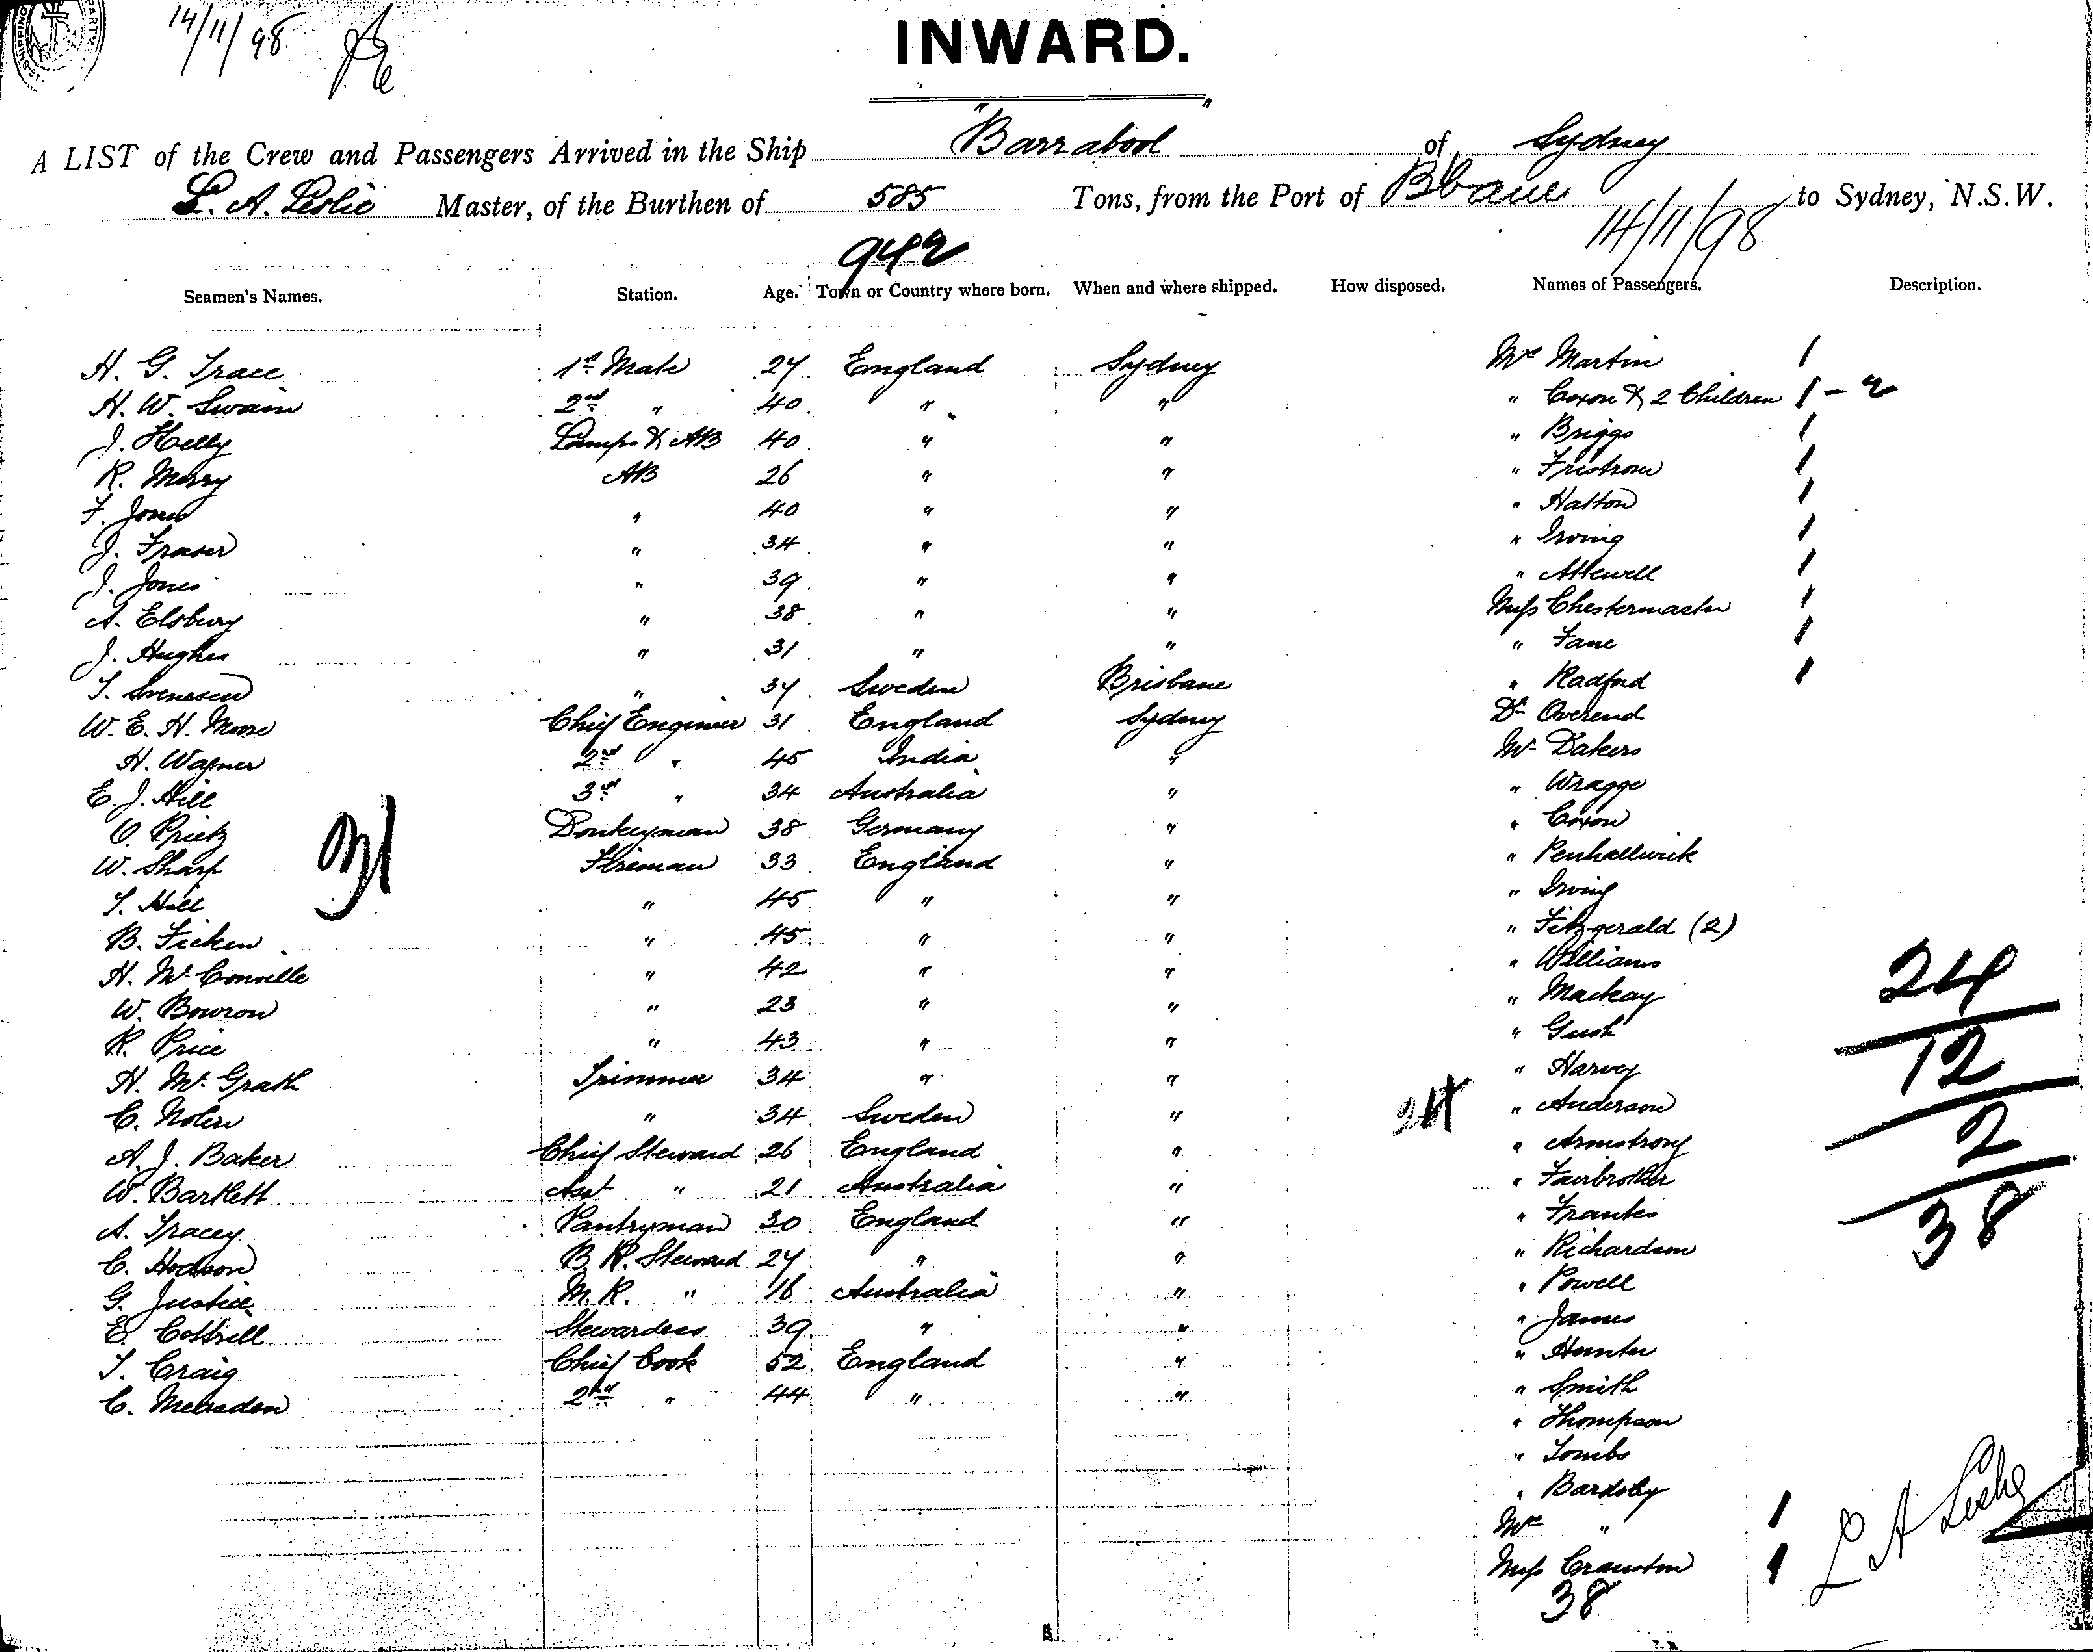 14/11/98
INWARD.
A LIST of the Crew and Passengers Arrived in the Ship "Barrabool" of Sydney
L. A. Leslie Master, of the Burthen of 585 Tons, from the Port of Bbane to Sydney, N.S.W.
942 14/11/98
Seamen's Names. Station. Age. Town or Country where born. When and where shipped. How disposed. Names of Passengers. Description.
H. G. Trace 1st Mate 27 England Sydney Mrs Martin 1
H. W. Swain 2nd " 40 " " " Coxon & 2 Children 1 - 2
J. Helly Lamps & AB 40 " " " Briggs 1
R. Merry AB 26 " " " Fristrom 1
F. Jones " 40 " " " Hatton 1
J. Fraser " 34 " " " Irving 1
J. Jones " 39 " " " Attewell 1
A. Elsbury " 38 " " Miss Chestermaster 1
J. Hughes " 31 " " " Fane 1
T. Svenssen " 37 Sweden Brisbane " Radford 1
W. E. H. Moore Chief Engineer 31 England Sydney Dr Overend
H. Wagner 2nd " 45 India " Mr Dakers
E. J. Hill 3rd " 34 Australia " " Wragge
O. Prietz Donkeyman 38 Germany " " Coxon
W. Sharp Fireman 33 England " " Penhallurick
T. Hill " 45 " " " Irving
31
B. Ficken " 45 " " " Fitzgerald (2)
H. McConville " 42 " " " Williams
W. Bowron " 23 " " " Mackay 24
R. Price " 43 " " " Gush
H. McGrath Trimmer 34 " " " Harvey 12
C. Nolin " 34 Sweden " 24 " Anderson
A. J. Baker Chief Steward 26 England " " Armstrong 2
W. Bartlett Asst " 21 Australia " " Fairbrother
A. Tracey Pantryman 30 England " " Franks 38
C. Hodson B. R. Steward 27 " " " Richardson
G. Justice M. R. " 16 Australia " " Powell
E. Cottrell Stewardess 39 " " " James
T. Craig Chief Cook 52 England " " Hunter
C. 2nd " 44 " " " Smith
" Thompson
" Tombs
" Bardsley
Mrs " 1
Miss Cranston 1
38
L A Leslie